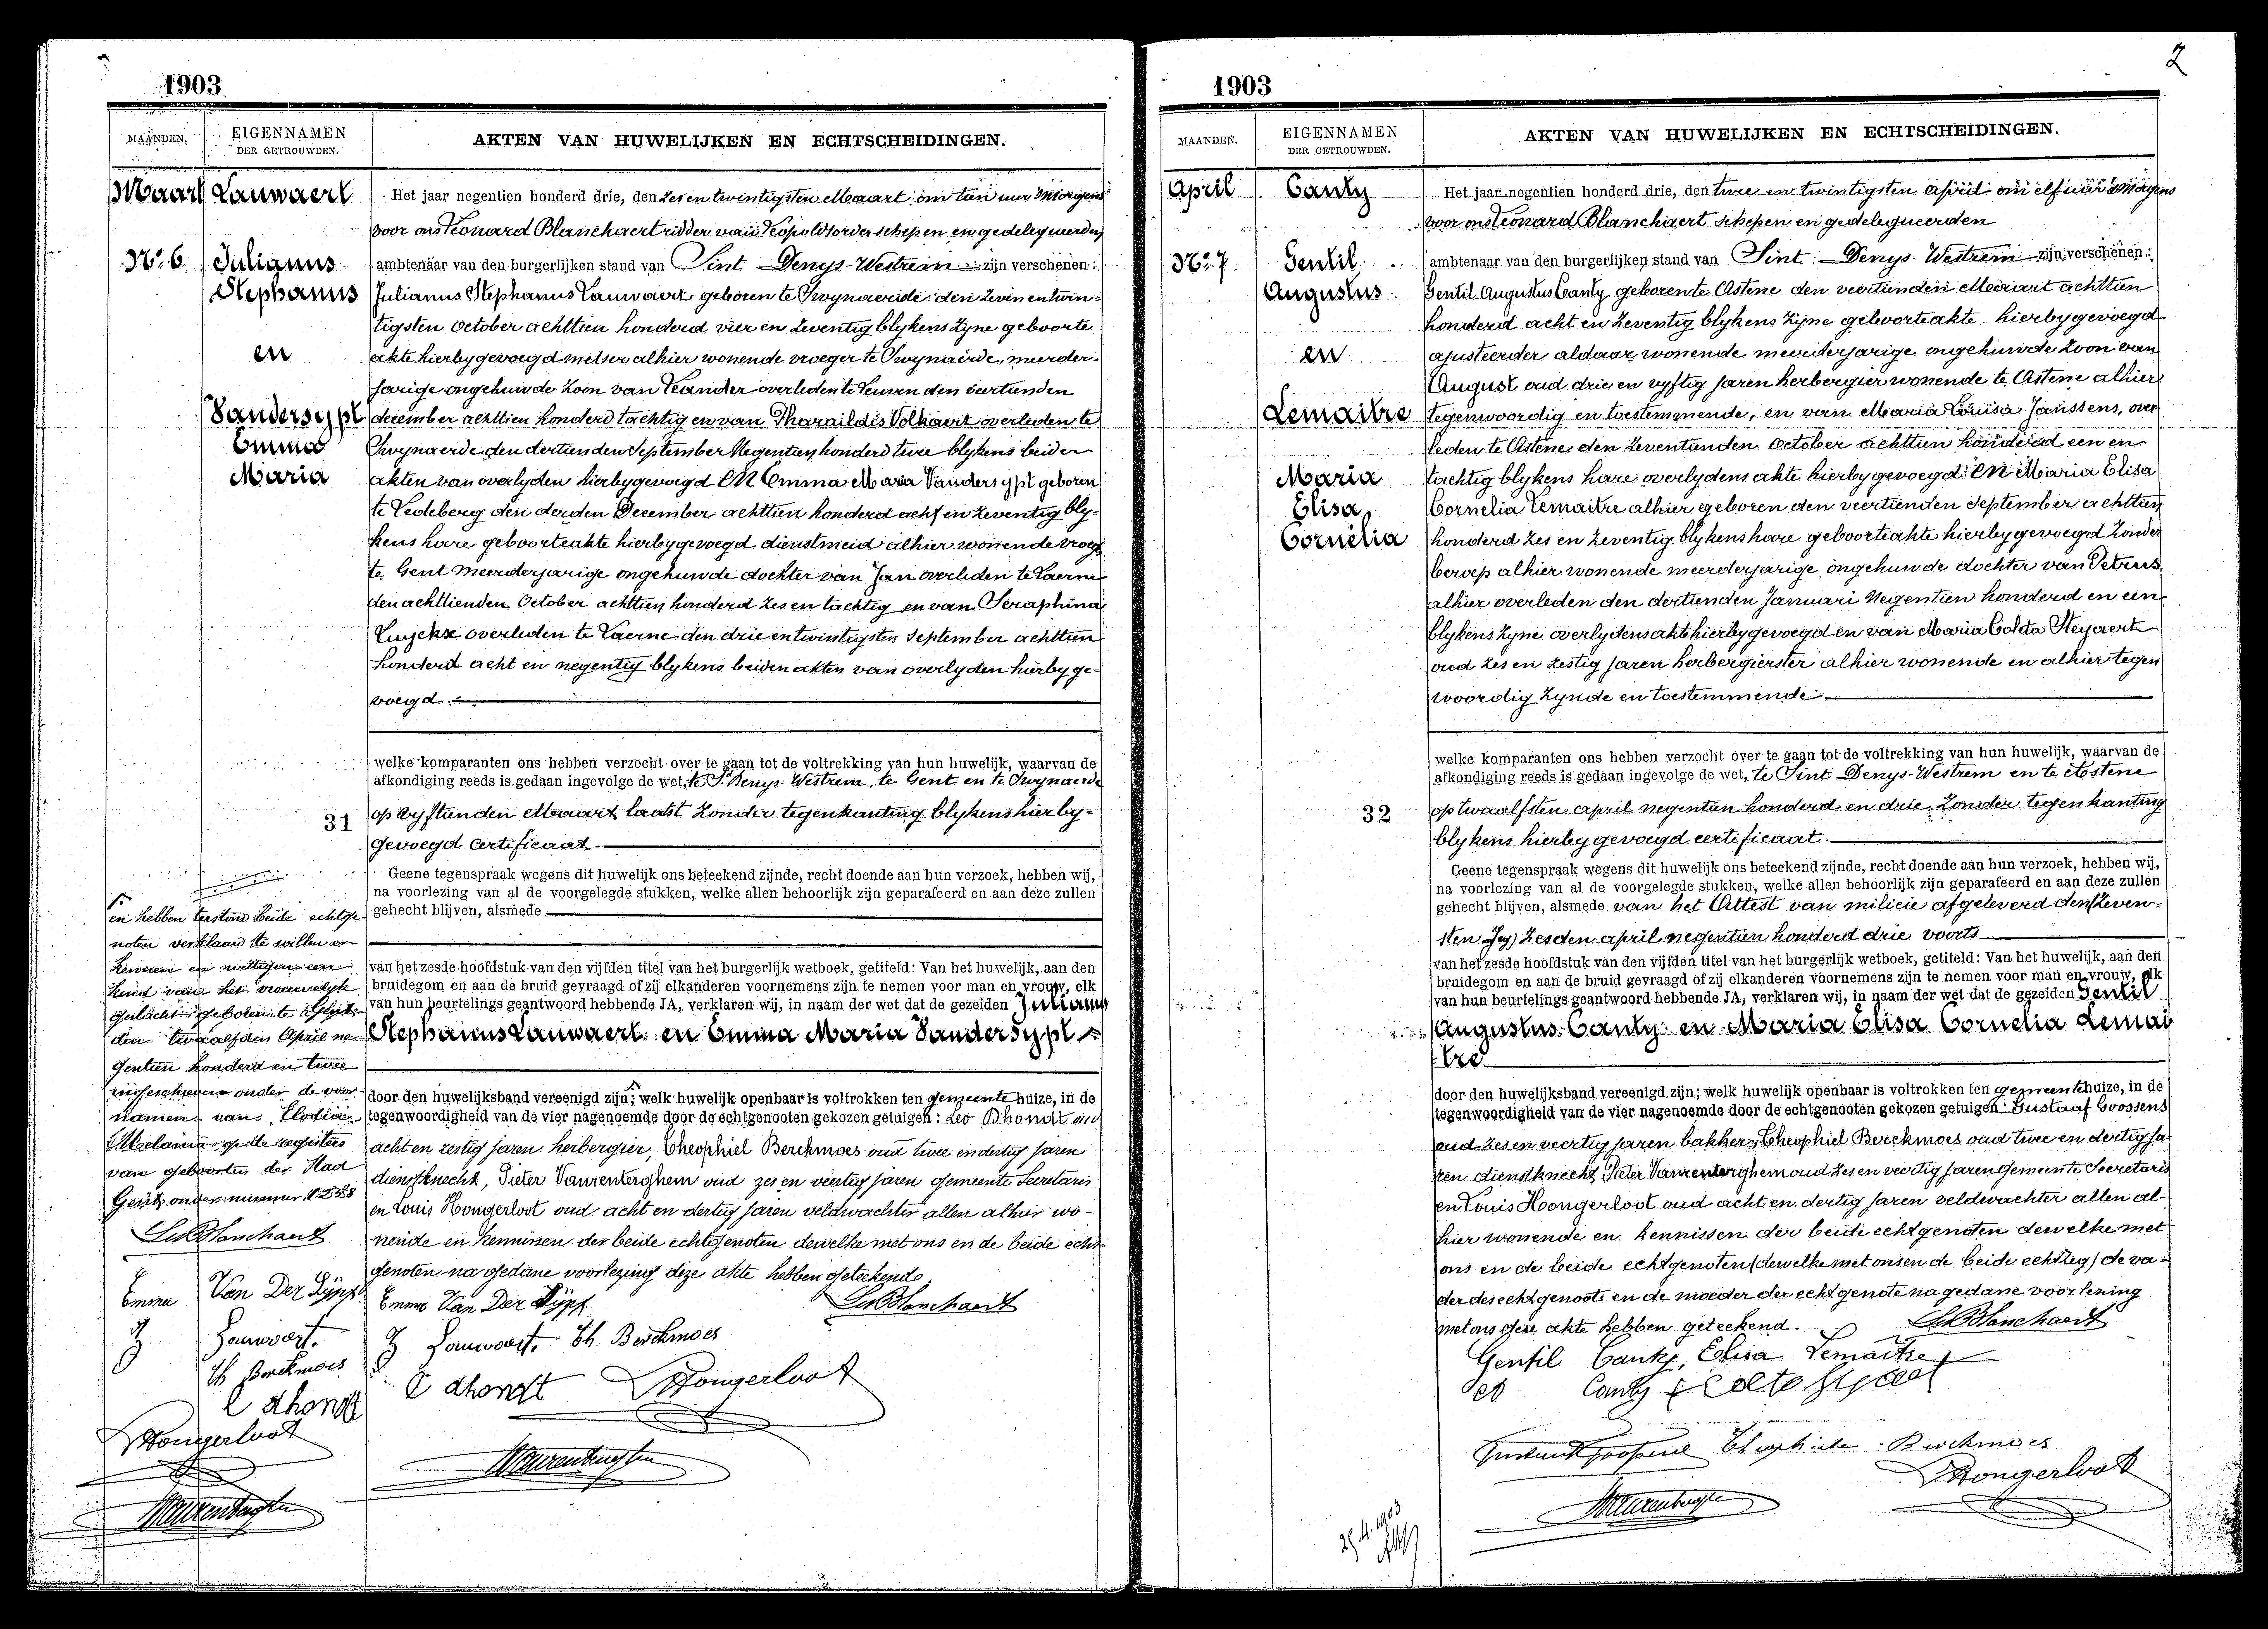 1903
MAANDEN.
EIGENNAMEN
DER GETROUWDEN.
AKTEN VAN HUWELIJKEN EN ECHTSCHEIDINGEN.
Maart
Lauwaert
No. 6
Julianus
Stephanus
en
Vandersypt
Emma
Maria
Het jaar negentien honderd drie, den zes en twintigsten Maart om tien uur 's morgens
voor ons Leonard Blanchaert ridder van Leopoldsorder schepen en gedelegueerden
ambtenaar van den burgerlijken stand van Sint Denys-Westrem zijn verschenen:
Julianus Stephanus Lauwaert geboren te Swynaerde den zeven en twin-
tigsten October achttien honderd vier en zeventig blykens zyne geboorte
akte hierbygevoegd metser alhier wonende vroeger te Swynaerde, meerder-
jarige ongehuwde zoon van Leander overleden te Leuven den veertienden
december achttien honderd tachtig en van Pharaildis Volkaert overleden te
Swynaerde den dertienden September Negentien honderd twee blykens beider
akten van overlyden hierbygevoegd EN Emma Maria Vandersypt geboren
te Ledeberg den derden December achttien honderd acht en zeventig bly-
kens hare geboorteakte hierbygevoegd dienstmeid alhier wonende vroeg
te Gent Meerderjarige ongehuwde dochter van Jan overleden te Laerne
den achttienden October achttien honderd zes en tachtig en van Seraphina
Luyckx overleden te Laerne den drie en twintigsten September achttien
honderd acht en negentig blykens beiden akten van overlyden hierby ge-
voegd.
welke komparanten ons hebben verzocht over te gaan tot de voltrekking van hun huwelijk, waarvan de
afkondiging reeds is gedaan ingevolge de wet, te St Denys-Westrem, te Gent en te Swynaerde
31
op vyftienden Maart laatst zonder tegenkanting blykens hierby-
gevoegd certificaat.
Geene tegenspraak wegens dit huwelijk ons beteekend zijnde, recht doende aan hun verzoek, hebben wij,
na voorlezing van al de voorgelegde stukken, welke allen behoorlijk zijn geparafeerd en aan deze zullen
gehecht blijven, alsmede
van het zesde hoofdstuk van den vijfden titel van het burgerlijk wetboek, getiteld: Van het huwelijk, aan den
bruidegom en aan de bruid gevraagd of zij elkanderen voornemens zijn te nemen voor man en vrouw, elk
van hun beurtelings geantwoord hebbende JA, verklaren wij, in naam der wet dat de gezeiden Julianus
Stephanus Lauwaert en Emma Maria Vandersypt
door den huwelijksband vereenigd zijn; welk huwelijk openbaar is voltrokken ten gemeentehuize, in de
tegenwoordigheid van de vier nagenoemde door de echtgenooten gekozen getuigen: Leo Dhondt oud
acht en zestig jaren herbergier, Theophiel Berckmoes oud twee en dertig jaren
dienstknecht, Pieter Vanrenterghem oud zes en veertig jaren gemeente Secretaris
en Louis Hongerloot oud acht en dertig jaren veldwachter allen alhier wo-
nende en kennissen der beide echtgenoten dewelke met ons en de beide echt-
genoten na gedane voorlezing deze akte hebben geteekend.
en hebben terstond beide echtge-
noten verklaard te willen er
kennen en wettigen een
kind van het vrouwelyk
geslacht geboren te Gent
den twaalfden April ne-
gentien honderd en twee
ingeschreven onder de voor-
namen van Elodia
Melania op de registers
van geboorten der Stad
Gent onder nummer 1258
Leo Blanchaert
Emma Van Der Sÿpt
J Lauwaert.
Th Berckmoes
L dhondt
LHongerloot
PVanrenterghem
Emma Van Der Sÿpt
Leo Blanchaert
J Lauwaert. Th Berckmoes
L dhondt
LHongerloot
PVanrenterghem
2
1903
MAANDEN.
EIGENNAMEN
DER GETROUWDEN.
AKTEN VAN HUWELIJKEN EN ECHTSCHEIDINGEN.
April
Canty
No. 7
Gentil
Augustus
en
Lemaitre
Maria
Elisa
Cornelia
Het jaar negentien honderd drie, den twee en twintigsten april om elf uur 's morgens
voor ons Leonard Blanchaert schepen en gedelegueerden
ambtenaar van den burgerlijken stand van Sint Denys-Westrem zijn verschenen:
Gentil Augustus Canty geboren te Astene den veertienden Maart achttien
honderd acht en zeventig blykens zijne geboorteakte hierbygevoegd
ajusteerder aldaar wonende meerderjarige ongehuwde zoon van
August oud drie en vyftig jaren herbergier wonende te Astene alhier
tegenwoordig en toestemmende, en van Maria Louisa Janssens, over
leden te Astene den zeventienden October achttien honderd een en
tachtig blykens hare overlydens akte hierbygevoegd EN Maria Elisa
Cornelia Lemaitre alhier geboren den veertienden september achttien
honderd zes en zeventig blykens hare geboorteakte hierbygevoegd zonder
beroep alhier wonende meerderjarige ongehuwde dochter van Petrus
alhier overleden den dertienden Januari Negentien honderd en een
blykens zyne overlydensakte hierbygevoegd en van Maria Coleta Steyaert
oud zes en zestig jaren herbergierster alhier wonende en alhier tegen
woordig zynde en toestemmende
welke komparanten ons hebben verzocht over te gaan tot de voltrekking van hun huwelijk, waarvan de
afkondiging reeds is gedaan ingevolge de wet, te Sint Denys-Westrem en te Astene
32
op twaalfsten april negentien honderd en drie, zonder tegenkanting
blykens hierby gevoegd certificaat.
Geene tegenspraak wegens dit huwelijk ons beteekend zijnde, recht doende aan hun verzoek, hebben wij,
na voorlezing van al de voorgelegde stukken, welke allen behoorlijk zijn geparafeerd en aan deze zullen
gehecht blijven, alsmede van het Attest van milicie afgeleverd den (zeven-
sten zeg) zesden april negentien honderd drie voorts
van het zesde hoofdstuk van den vijfden titel van het burgerlijk wetboek, getiteld: Van het huwelijk, aan den
bruidegom en aan de bruid gevraagd of zij elkanderen voornemens zijn te nemen voor man en vrouw, elk
van hun beurtelings geantwoord hebbende JA, verklaren wij, in naam der wet dat de gezeiden Gentil
Augustus Canty en Maria Elisa Cornelia Lemai
tre
door den huwelijksband vereenigd zijn; welk huwelijk openbaar is voltrokken ten gemeentehuize, in de
tegenwoordigheid van de vier nagenoemde door de echtgenooten gekozen getuigen: Gustaaf Goossens
oud zes en veertig jaren bakker, Theophiel Berckmoes oud twee en dertig ja
ren dienstknecht, Pieter Vanrenterghem oud zes en veertig jaren Gemeente Secretaris
en Louis Hongerloot oud acht en dertig jaren veldwachter allen al-
hier wonende en kennissen der beide echtgenoten dewelke met
ons en de beide echtgenoten (dewelke met ons en de beide echt zeg) de va-
der des echtgenoots en de moeder der echtgenote na gedane voorlezing
met ons deze akte hebben geteekend.
Leo Blanchaert
Gentil Canty, Elisa Lemaitre
Canty
Gustaaf Goossens Theophiele Berckmoes
LHongerloot
PVanrenterghem
25.4.1903